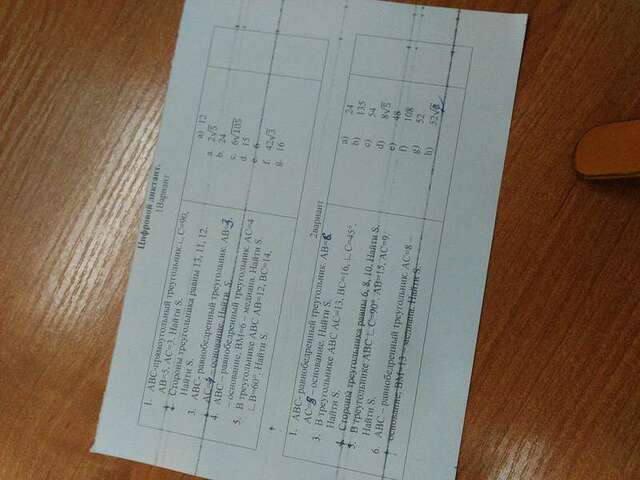 Цифровой диктант.
1Вариант
1. АВС-прямоугольный треугольник ∟С=90,
АВ=5, АС=3. Найти S.
Стороны треугольника равны 13, 11, 12.
Найти S.
3. АВС- равнобедренный треугольник. АВ=3.
АС – основание. Найти S.
4. АВС – равнобедренный треугольник. АС=4
– основание; ВМ=6 – медиана. Найти S.
5. В треугольнике АВС АВ=12, ВС=14,
∟В=60°. Найти S.
a) 12
a. 2√5
b. 24
c. 6√105
d. 15
e. 6
f. 42√3
g. 16
2вариант
1. АВС- равнобедренный треугольник. АВ=6
АС-8 – основание. Найти S.
3. В треугольнике АВС АС=13, ВС=16, ∟С=45°
Найти S.
Стороны треугольника равны 6, 8, 10. Найти S.
5. В треугольнике АВС ∟С=90°. АВ=15, АС=9.
Найти S.
6. АВС – равнобедренный треугольник. АС=8 –
основание; ВМ=13 – медиана. Найти S.
a) 24
b) 135
c) 54
d) 8√5
e) 48
f) 108
g) 52
h) 52√